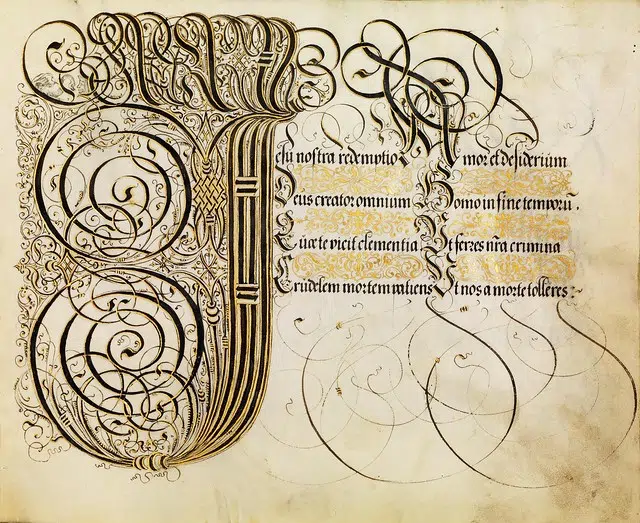 Jesu nostra redemptio Amor et desiderium
Deus creator omnium Homo in fine temporū.
Quæ te vicit clementia Ut ferres nr̄a crimina
Crudelem mortem patiens Ut nos a morte tolleres: